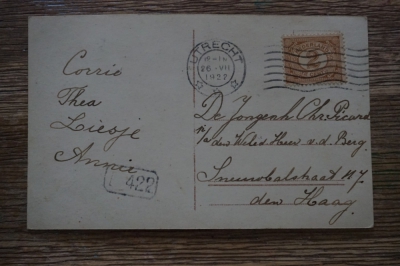 Corrie
Thea
Liesje
Annie
422
UTRECHT
26.VII
1922
De Jongenh. Chr. Picard
p/a den WelEd. Heer v. d. Berg.
117
den Haag.